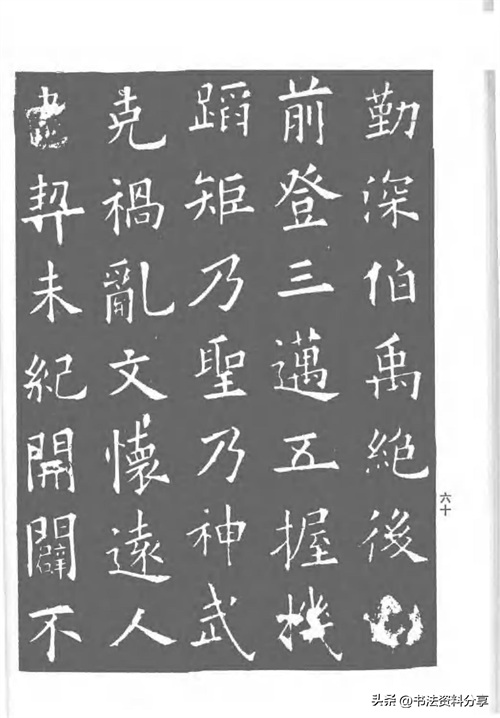 勤深伯禹絕後
前登三邁五握機
蹈矩乃聖乃神武
克禍亂文懷遠人
書契未紀開闢不
六十
头条 @书法资料分享